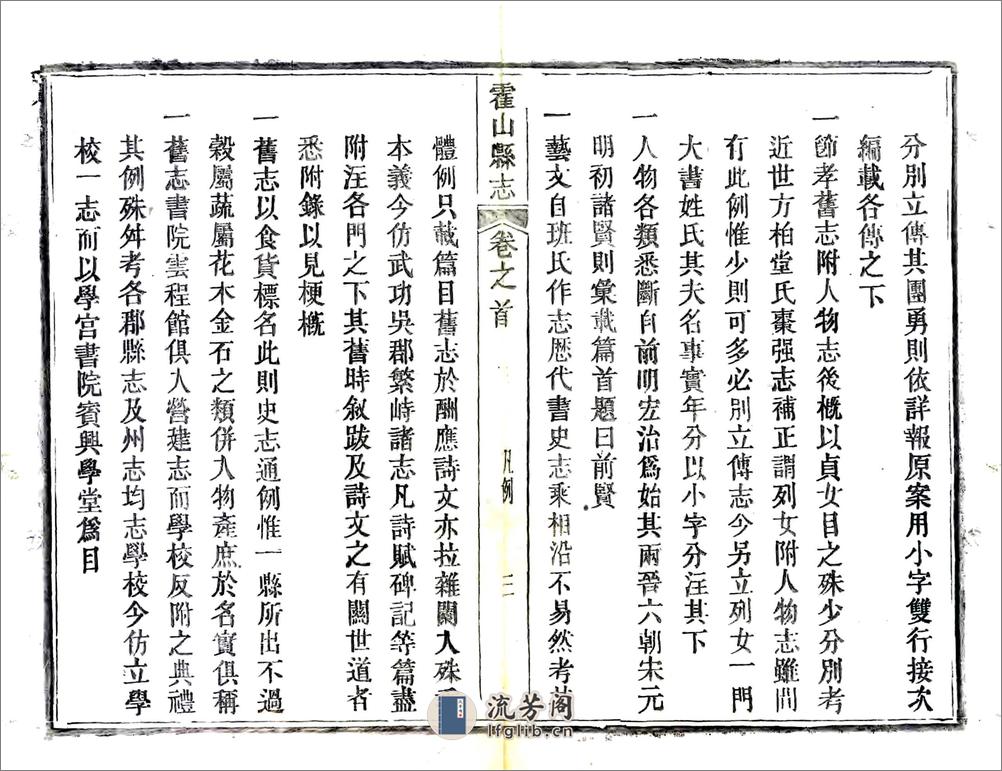 分別立傳其團勇則依詳報原案用小字雙行接次
編載各傳之下
一節孝舊志附人物志後概以貞女目之殊少分別考
近世方柏堂氏棗强志補正謂列女附人物志雖間
有此例惟少則可多必別立傳志今另立列女一門
大書姓氏其夫名事實年分以小字分注其下
一人物各類悉斷自前明宏治爲始其兩晉六朝宋元
明初諸賢則彙載篇首題曰前賢
一藝文自班氏作志歴代書史志乘相沿不易然考其
霍山縣志
卷之首
凡例
三
體例只載篇目舊志於酬應詩文亦拉雜闌入殊
本義今仿武功吳郡繁峙諸志凡詩賦碑記等篇盡
附注各門之下其舊時叙跋及詩文之有關世道者
悉附錄以見梗概
一舊志以食貨標名此則史志通例惟一縣所出不過
穀屬蔬屬花木金石之類併入物產庶於名實俱稱
一舊志書院雲程館俱入營建志而學校反附之典禮
其例殊舛考各郡縣志及州志均志學校今仿立學
校一志而以學宫書院賓興學堂爲目
流芳阁
lfglib.cn